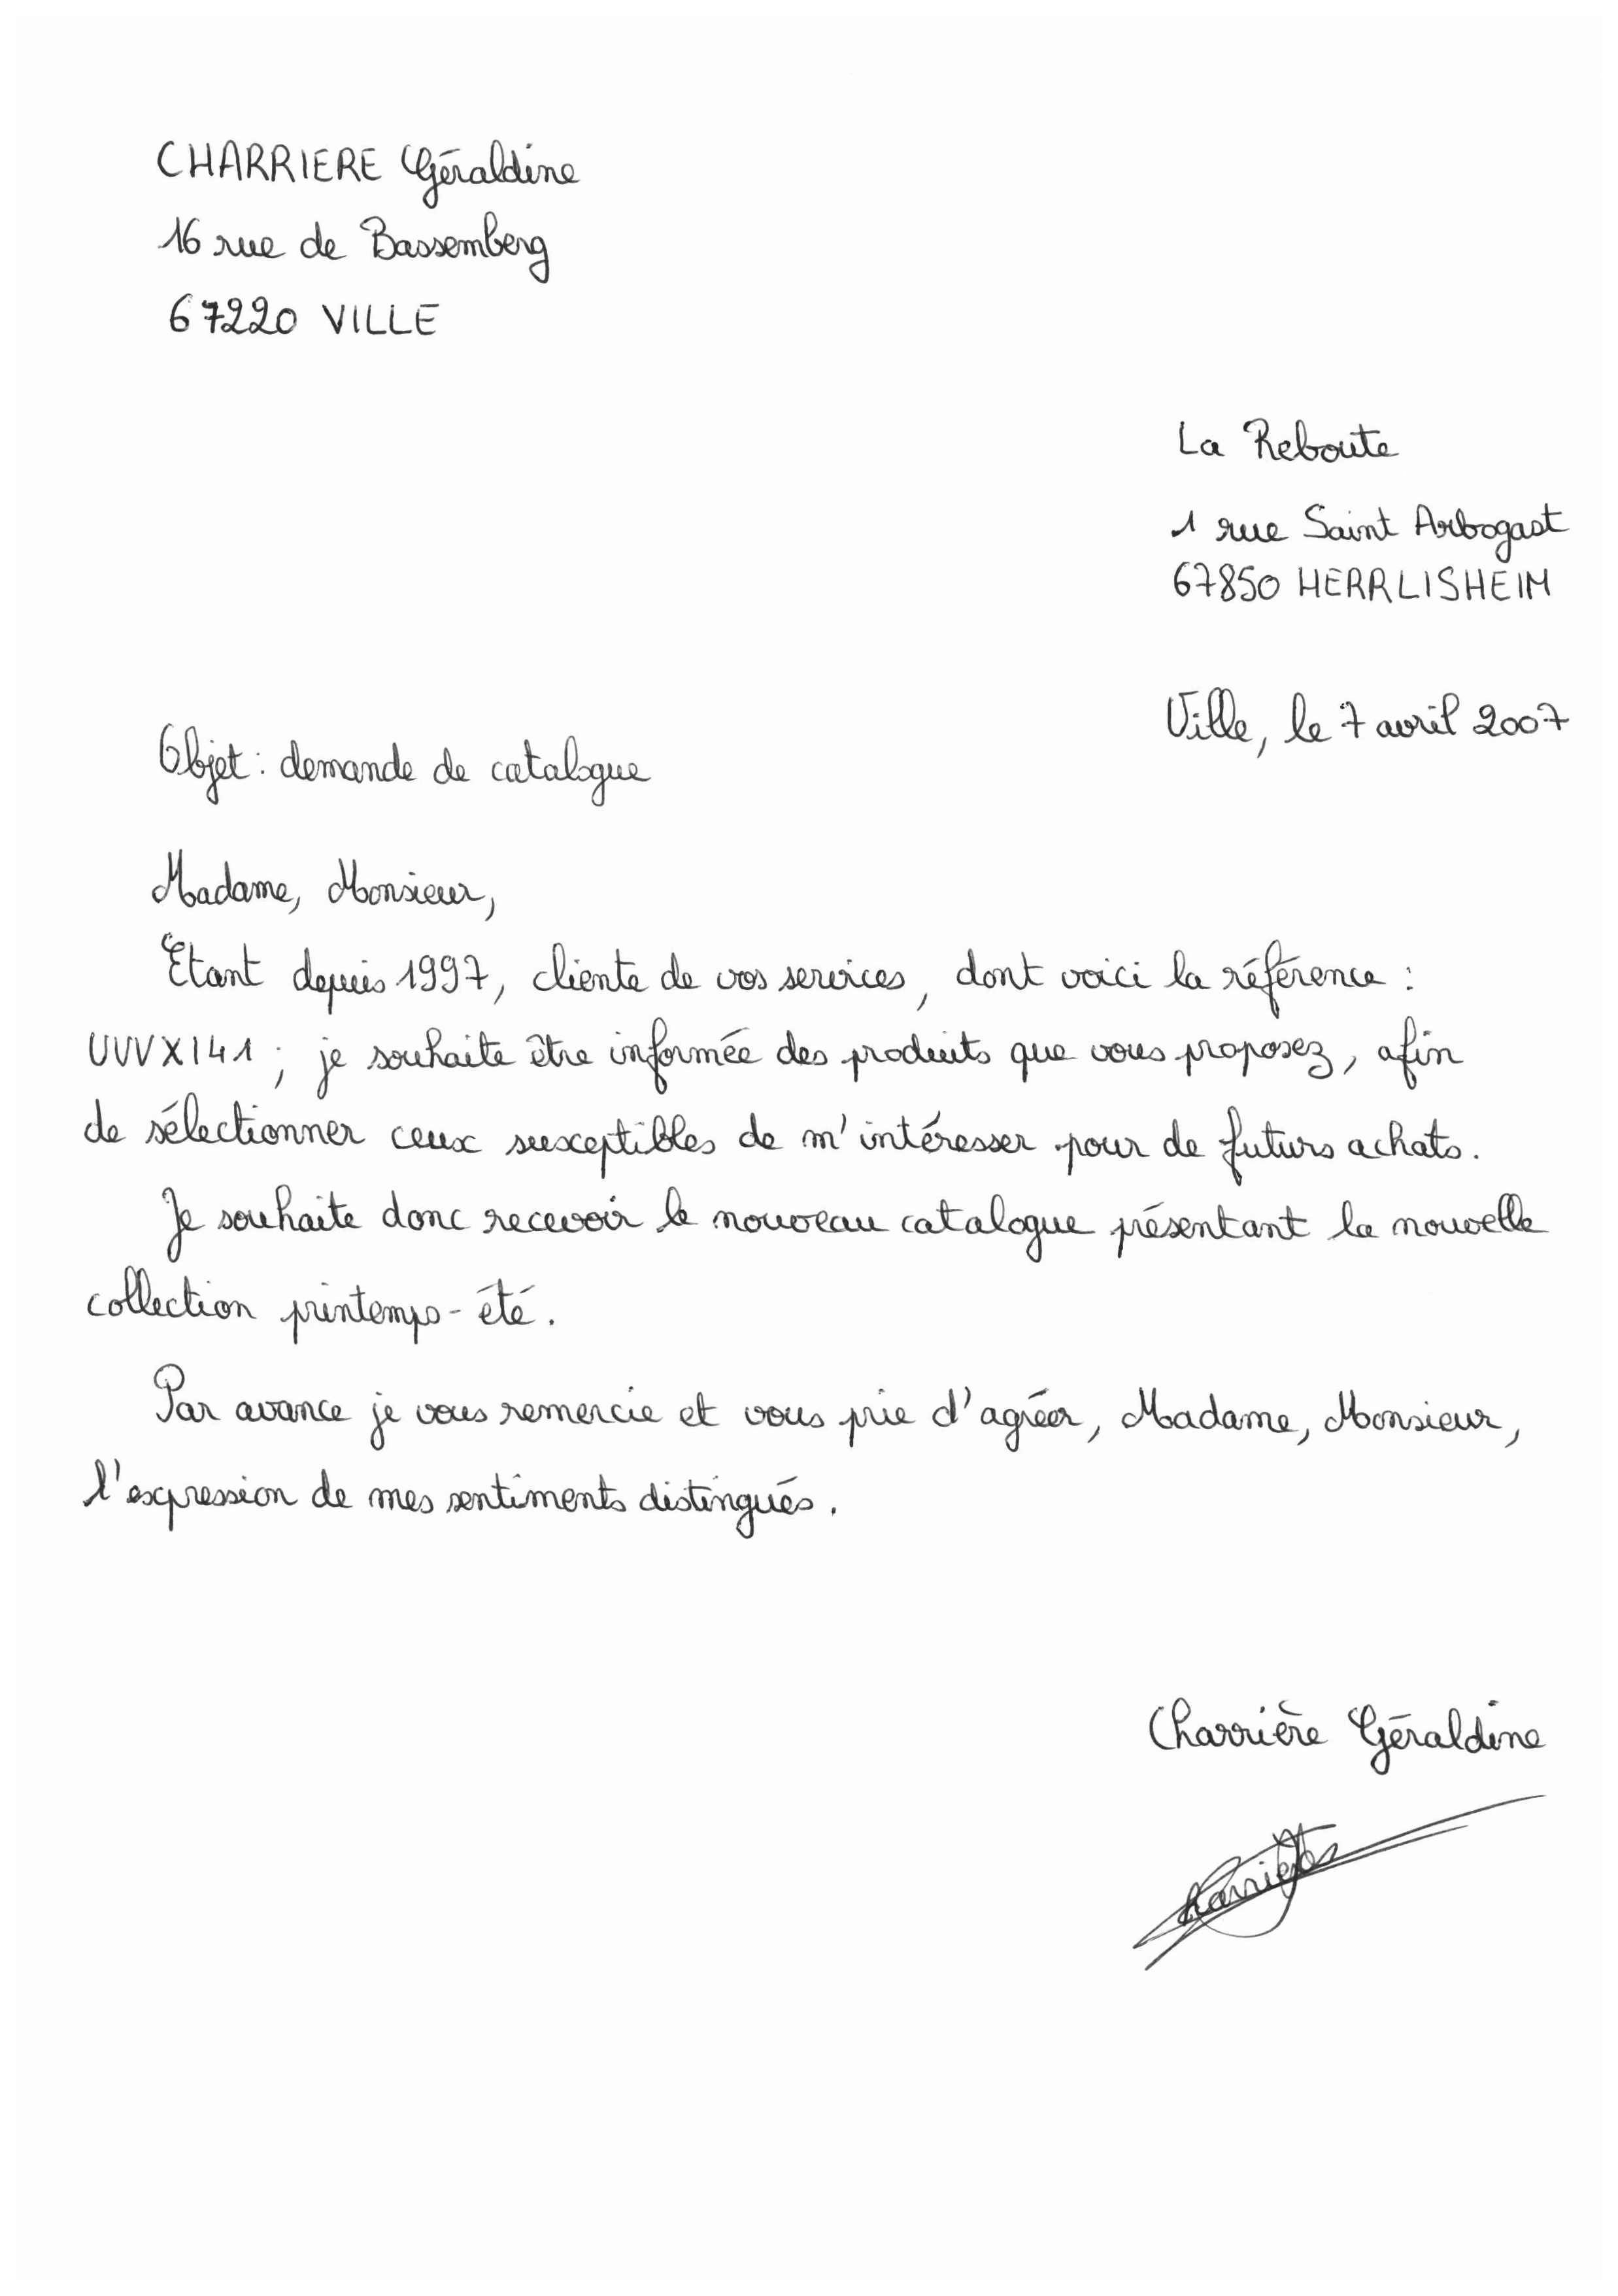 CHARRIERE Géraldine
16 rue de Bassemberg
67220 VILLE
La Reboute
1 rue Saint Arbogast
67850 HERRLISHEIM
Ville, le 7 avril 2007
Objet : demande de catalogue
Madame, Monsieur,
Etant depuis 1997, cliente de vos services, dont voici la référence :
UVVXI41 ; je souhaite être informée des produits que vous proposez, afin
de sélectionner ceux susceptibles de m'intéresser pour de futurs achats.
Je souhaite donc recevoir le nouveau catalogue présentant la nouvelle
collection printemps-été.
Par avance je vous remercie et vous prie d'agréer, Madame, Monsieur,
l'expression de mes sentiments distingués.
Charrière Géraldine